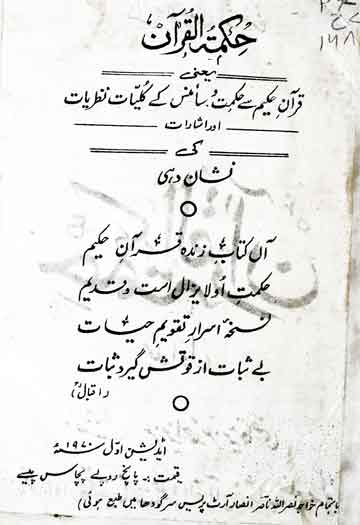 حکمۃ القرآن
یعنی
قرآن حکیم سے حکمت و سائنس کے کلیات نظریات
اور اشارات
کی
نشان دہی
آں کتاب زندہ قرآن حکیم
حکمت او لا یزال است و قدیم
نسخۂ اسرار تقویم حیات
بے ثبات از قوتش گیرد ثبات
(اقبالؒ)
ایڈیشن اوّل ۱۹۷۰ء
قیمت:۔ پانچ روپے پچاس پیسے
باہتمام خواجہ نصر اللہ ناصر انصار آرٹ پریس سرگودھا میں طبع ہوئی)